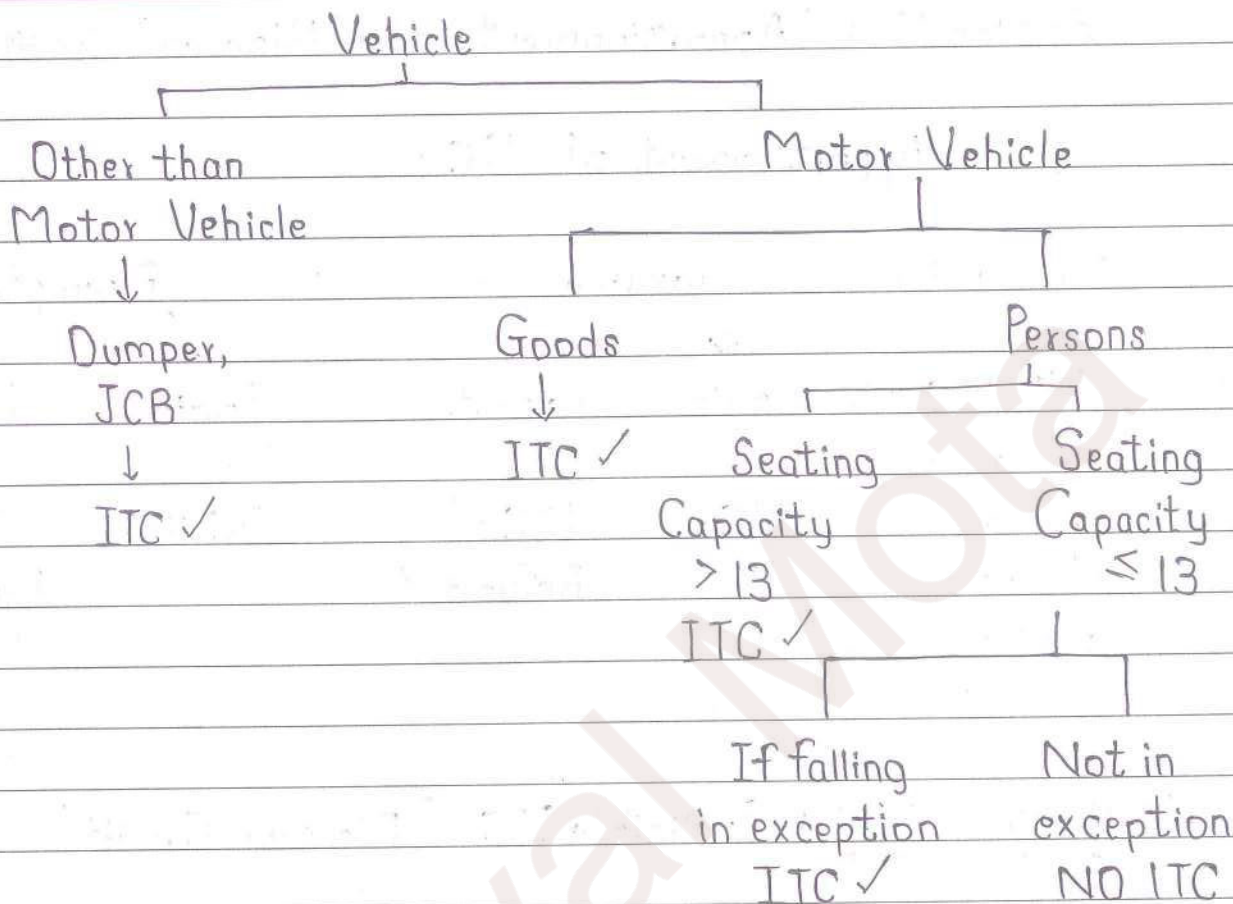 Vehicle
Other than
Motor Vehicle
↓
Dumper,
JCB
↓
ITC ✓
Motor Vehicle
Goods
↓
ITC ✓
Persons
Seating
Capacity
> 13
ITC ✓
Seating
Capacity
≤ 13
If falling
in exception
ITC ✓
Not in
exception
NO ITC